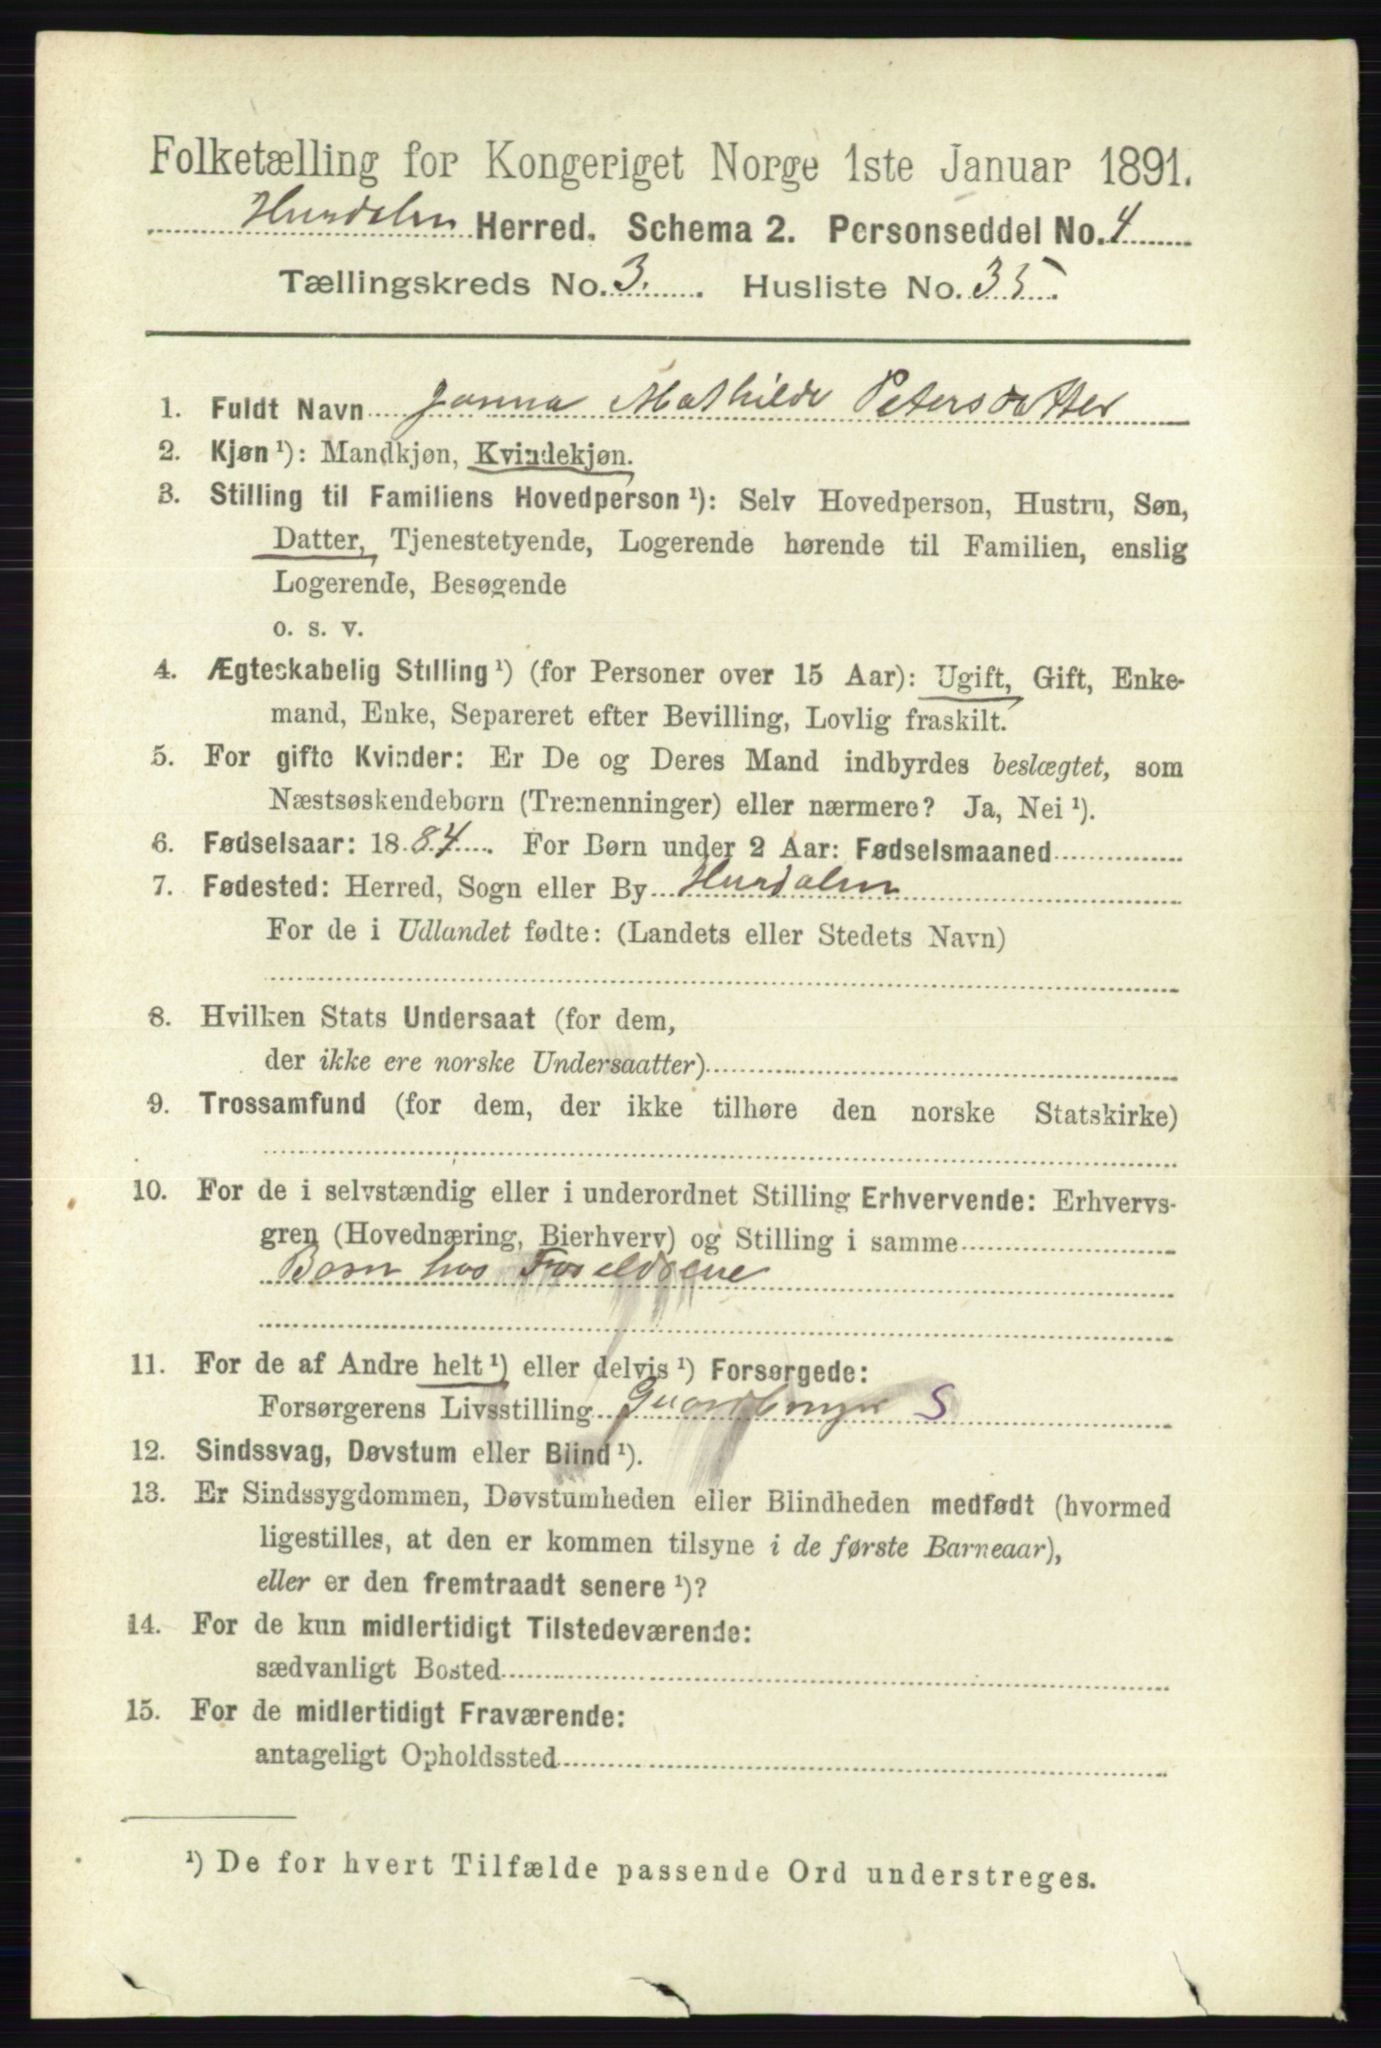 Folketælling for Kongeriget Norge 1ste Januar 1891.
Hurdalen Herred. Schema 2. Personseddel No. 4
Tællingskreds No. 3. Husliste No. 35.
1. Fuldt Navn Janna Mathilde Petersdatter
2. Kjøn ¹): Mandkjøn, Kvindekjøn.
3. Stilling til Familiens Hovedperson ¹): Selv Hovedperson, Hustru, Søn,
Datter, Tjenestetyende, Logerende hørende til Familien, enslig
Logerende, Besøgende
o. s. v.
4. Ægteskabelig Stilling ¹) (for Personer over 15 Aar): Ugift, Gift, Enke-
mand, Enke, Separeret efter Bevilling, Lovlig fraskilt.
5. For gifte Kvinder: Er De og Deres Mand indbyrdes beslægtet, som
Næstsøskendebørn (Tremenninger) eller nærmere? Ja, Nei ¹).
6. Fødselsaar: 1884. For Børn under 2 Aar: Fødselsmaaned
7. Fødested: Herred, Sogn eller By Hurdalen
For de i Udlandet fødte: (Landets eller Stedets Navn)
8. Hvilken Stats Undersaat (for dem,
der ikke ere norske Undersaatter)
9. Trossamfund (for dem, der ikke tilhøre den norske Statskirke)
10. For de i selvstændig eller i underordnet Stilling Erhvervende: Erhvervs-
gren (Hovednæring, Bierhverv) og Stilling i samme
Barn hos Forældrene
11. For de af Andre helt ¹) eller delvis ¹) Forsørgede:
Forsørgerens Livsstilling Gaardbruger S
12. Sindssvag, Døvstum eller Blind ¹).
13. Er Sindssygdommen, Døvstumheden eller Blindheden medfødt (hvormed
ligestilles, at den er kommen tilsyne i de første Barneaar),
eller er den fremtraadt senere ¹)?
14. For de kun midlertidigt Tilstedeværende:
sædvanligt Bosted
15. For de midlertidigt Fraværende:
antageligt Opholdssted
¹) De for hvert Tilfælde passende Ord understreges.